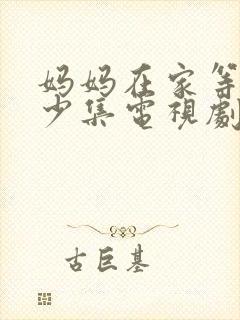 妈妈在家等
少集電視劇
古巨基